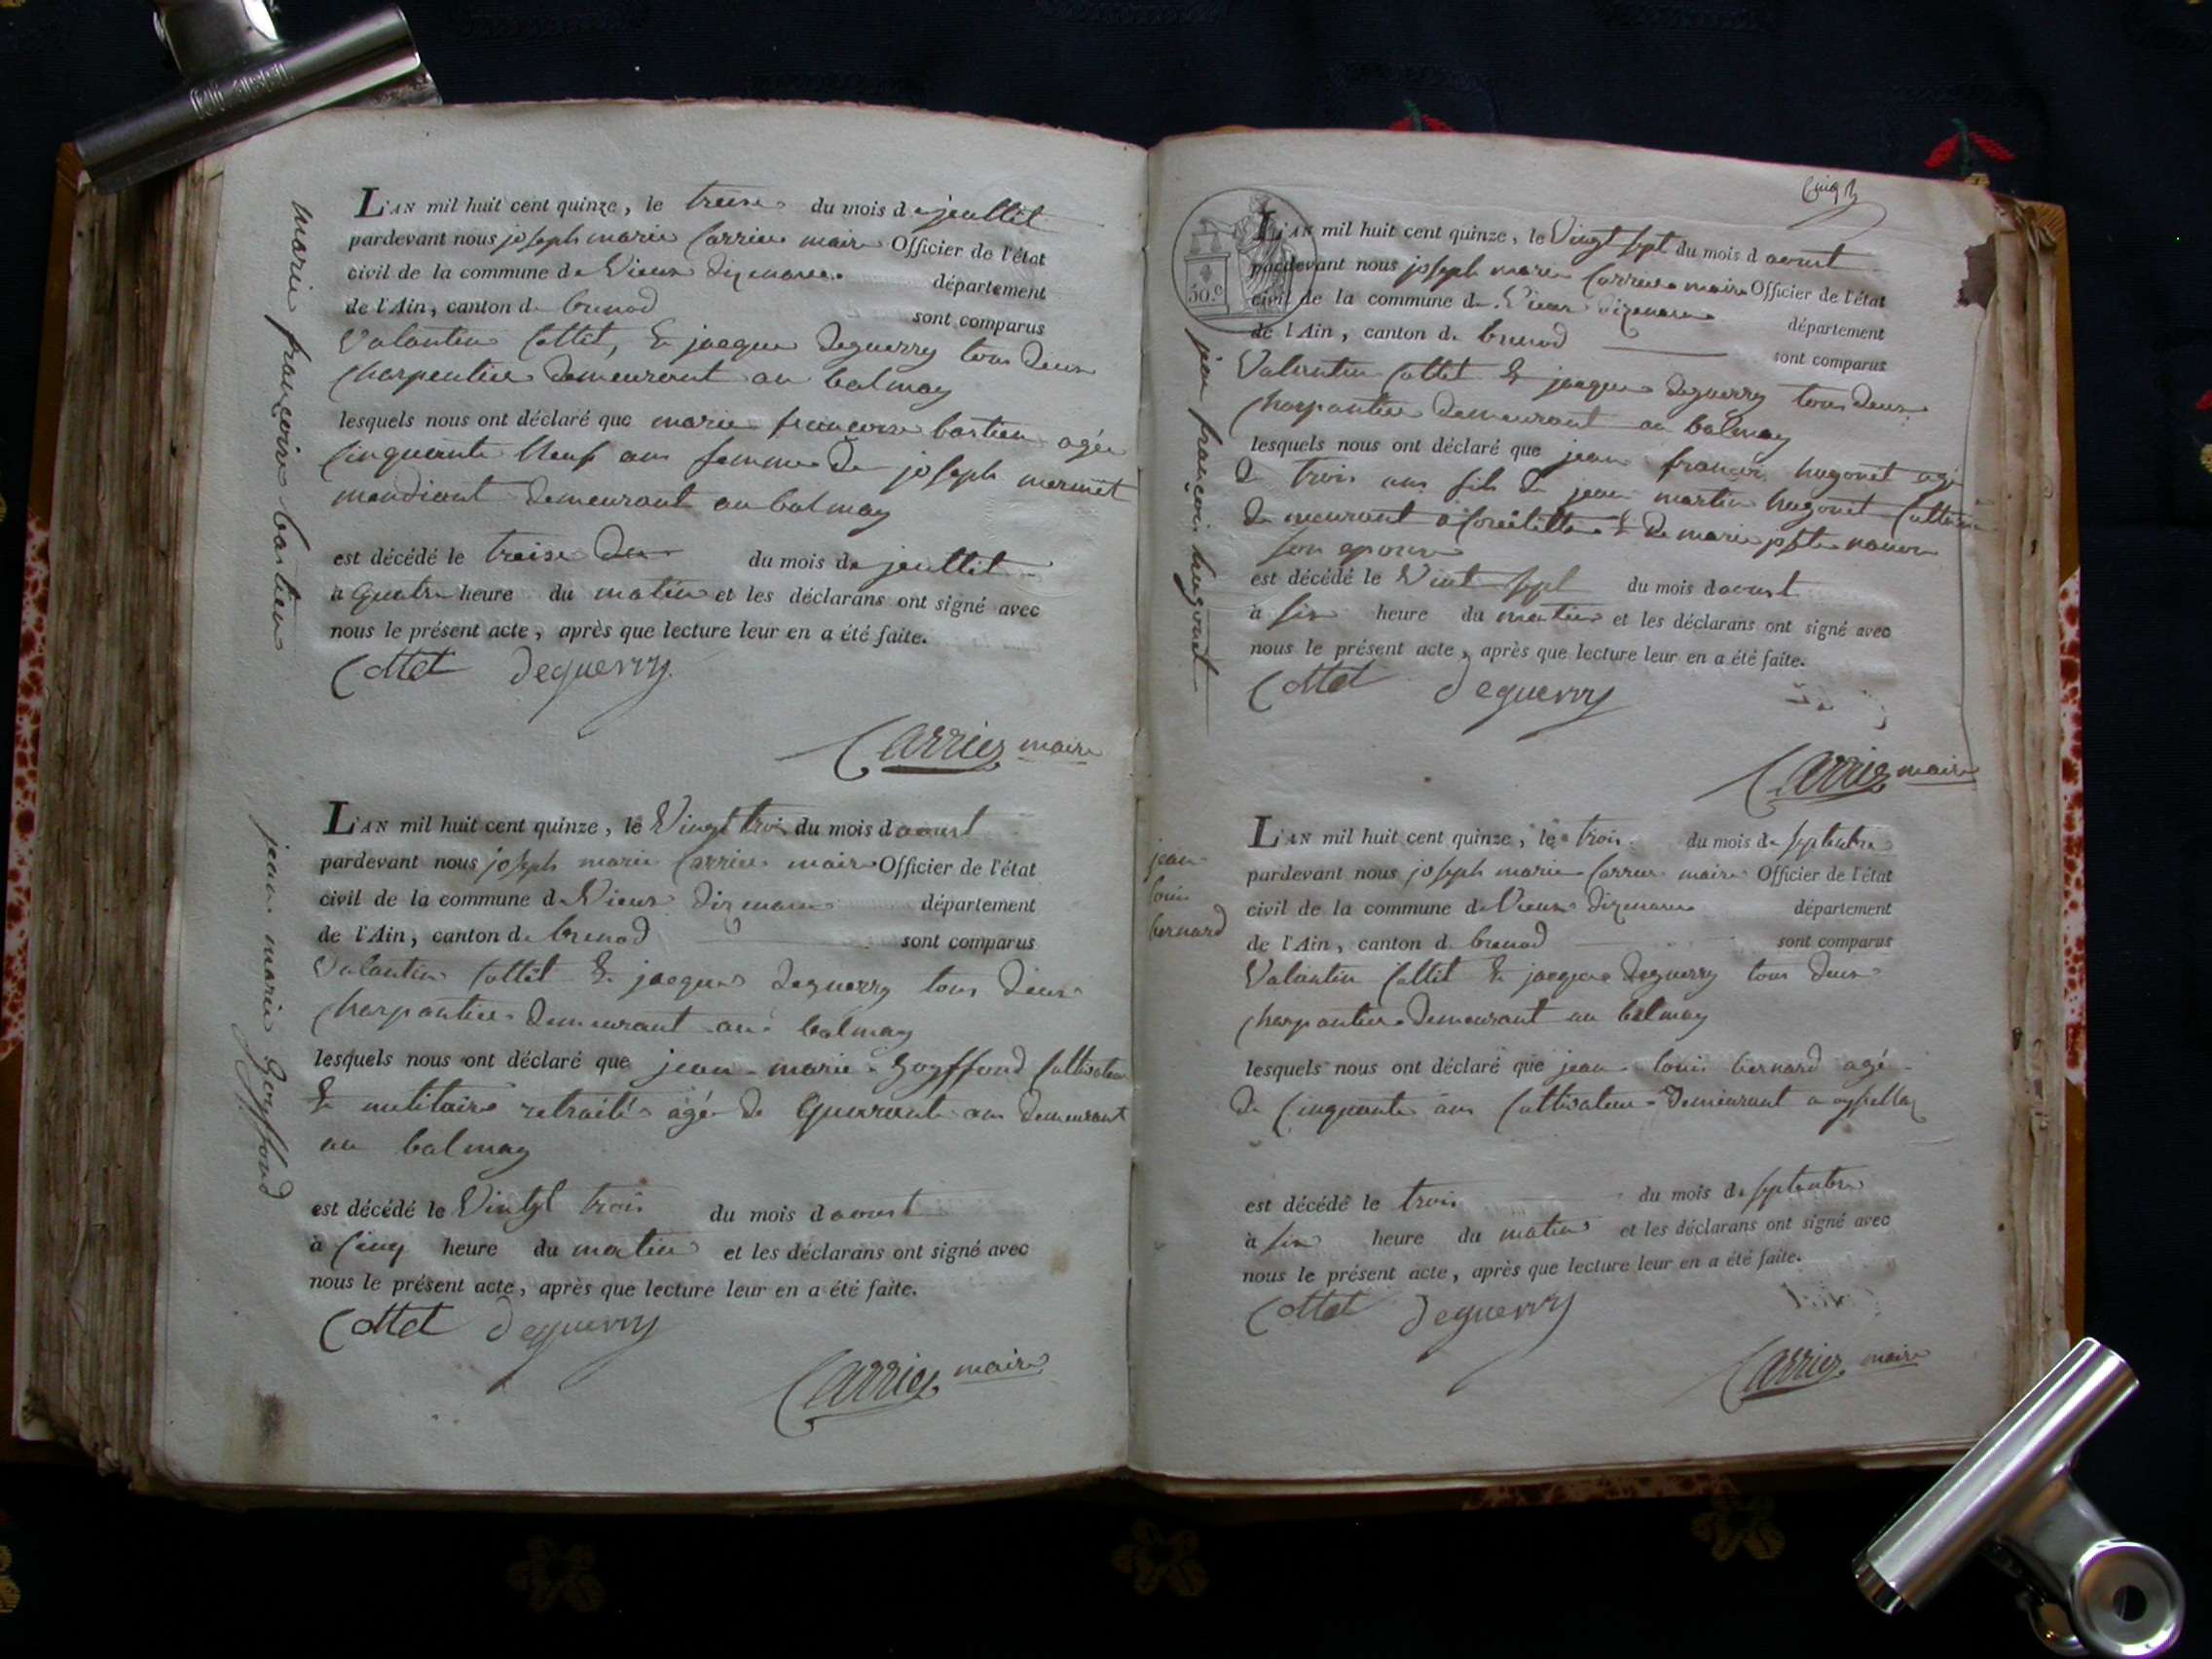 marie françoise bartien
L'AN mil huit cent quinze, le treise du mois de jeuллet
pardevant nous joseph marie Carrier maire Officier de l'état
civil de la commune de Vieux dizenave département
de l'Ain, canton de brenod sont comparus
Valantin Cottet, & jacque deguerry tous deux
charpentier demeurant au balmay
lesquels nous ont déclaré que marie françoise bartien agée
cinquante neuf ans femme de joseph mermet
mandiant demeurant au balmay
est décédé le treise du mois de jeullet
à quatre heure du matin et les déclarans ont signé avec
nous le présent acte, après que lecture leur en a été faite.
Cottet deguerry
Carrier maire
jean marie Goyffond
L'AN mil huit cent quinze, le Vingt trois du mois d aoust
pardevant nous joseph marie Carrier maire Officier de l'état
civil de la commune de Vieux dizenave département
de l'Ain, canton de brenod sont comparus
Valantin Cottet & jacques deguerry tous deux
charpantier demeurant au balmay
lesquels nous ont déclaré que jean marie Goyffond Cultivateur
& militaire retraité agé de quarante ans demeurant
au balmay
est décédé le Vingt trois du mois d aoust
à Cinq heure du matin et les déclarans ont signé avec
nous le présent acte, après que lecture leur en a été faite.
Cottet deguerry
Carrier maire
50.c
jean françois hugonet
L'AN mil huit cent quinze, le Vingt sept du mois d aoust
pardevant nous joseph marie Carrier maire Officier de l'état
civil de la commune de Vieux dizenave département
de l'Ain, canton de brenod sont comparus
Valantin Cottet & jacques deguerry tous deux
charpantier demeurant au balmay
lesquels nous ont déclaré que jean françois hugonet agé
de trois ans fils de jean martin hugonet Cultivateur
demeurant & de marie
son epouse
est décédé le Vint sept du mois d aoust
à six heure du matin et les déclarans ont signé avec
nous le présent acte, après que lecture leur en a été faite.
Cottet deguerry
Carrier maire
jean
louis
bernard
L'AN mil huit cent quinze, le trois du mois de septembre
pardevant nous joseph marie Carrier maire Officier de l'état
civil de la commune de Vieux dizenave département
de l'Ain, canton de brenod sont comparus
Valantin Cottet & jacque deguerry tous deux
charpantier demeurant au balmay
lesquels nous ont déclaré que jean louis bernard agé
de Cinquante ans Cultivateur demeurant a
est décédé le trois du mois de septembre
à six heure du matin et les déclarans ont signé avec
nous le présent acte, après que lecture leur en a été faite.
Cottet deguerry
Carrier maire